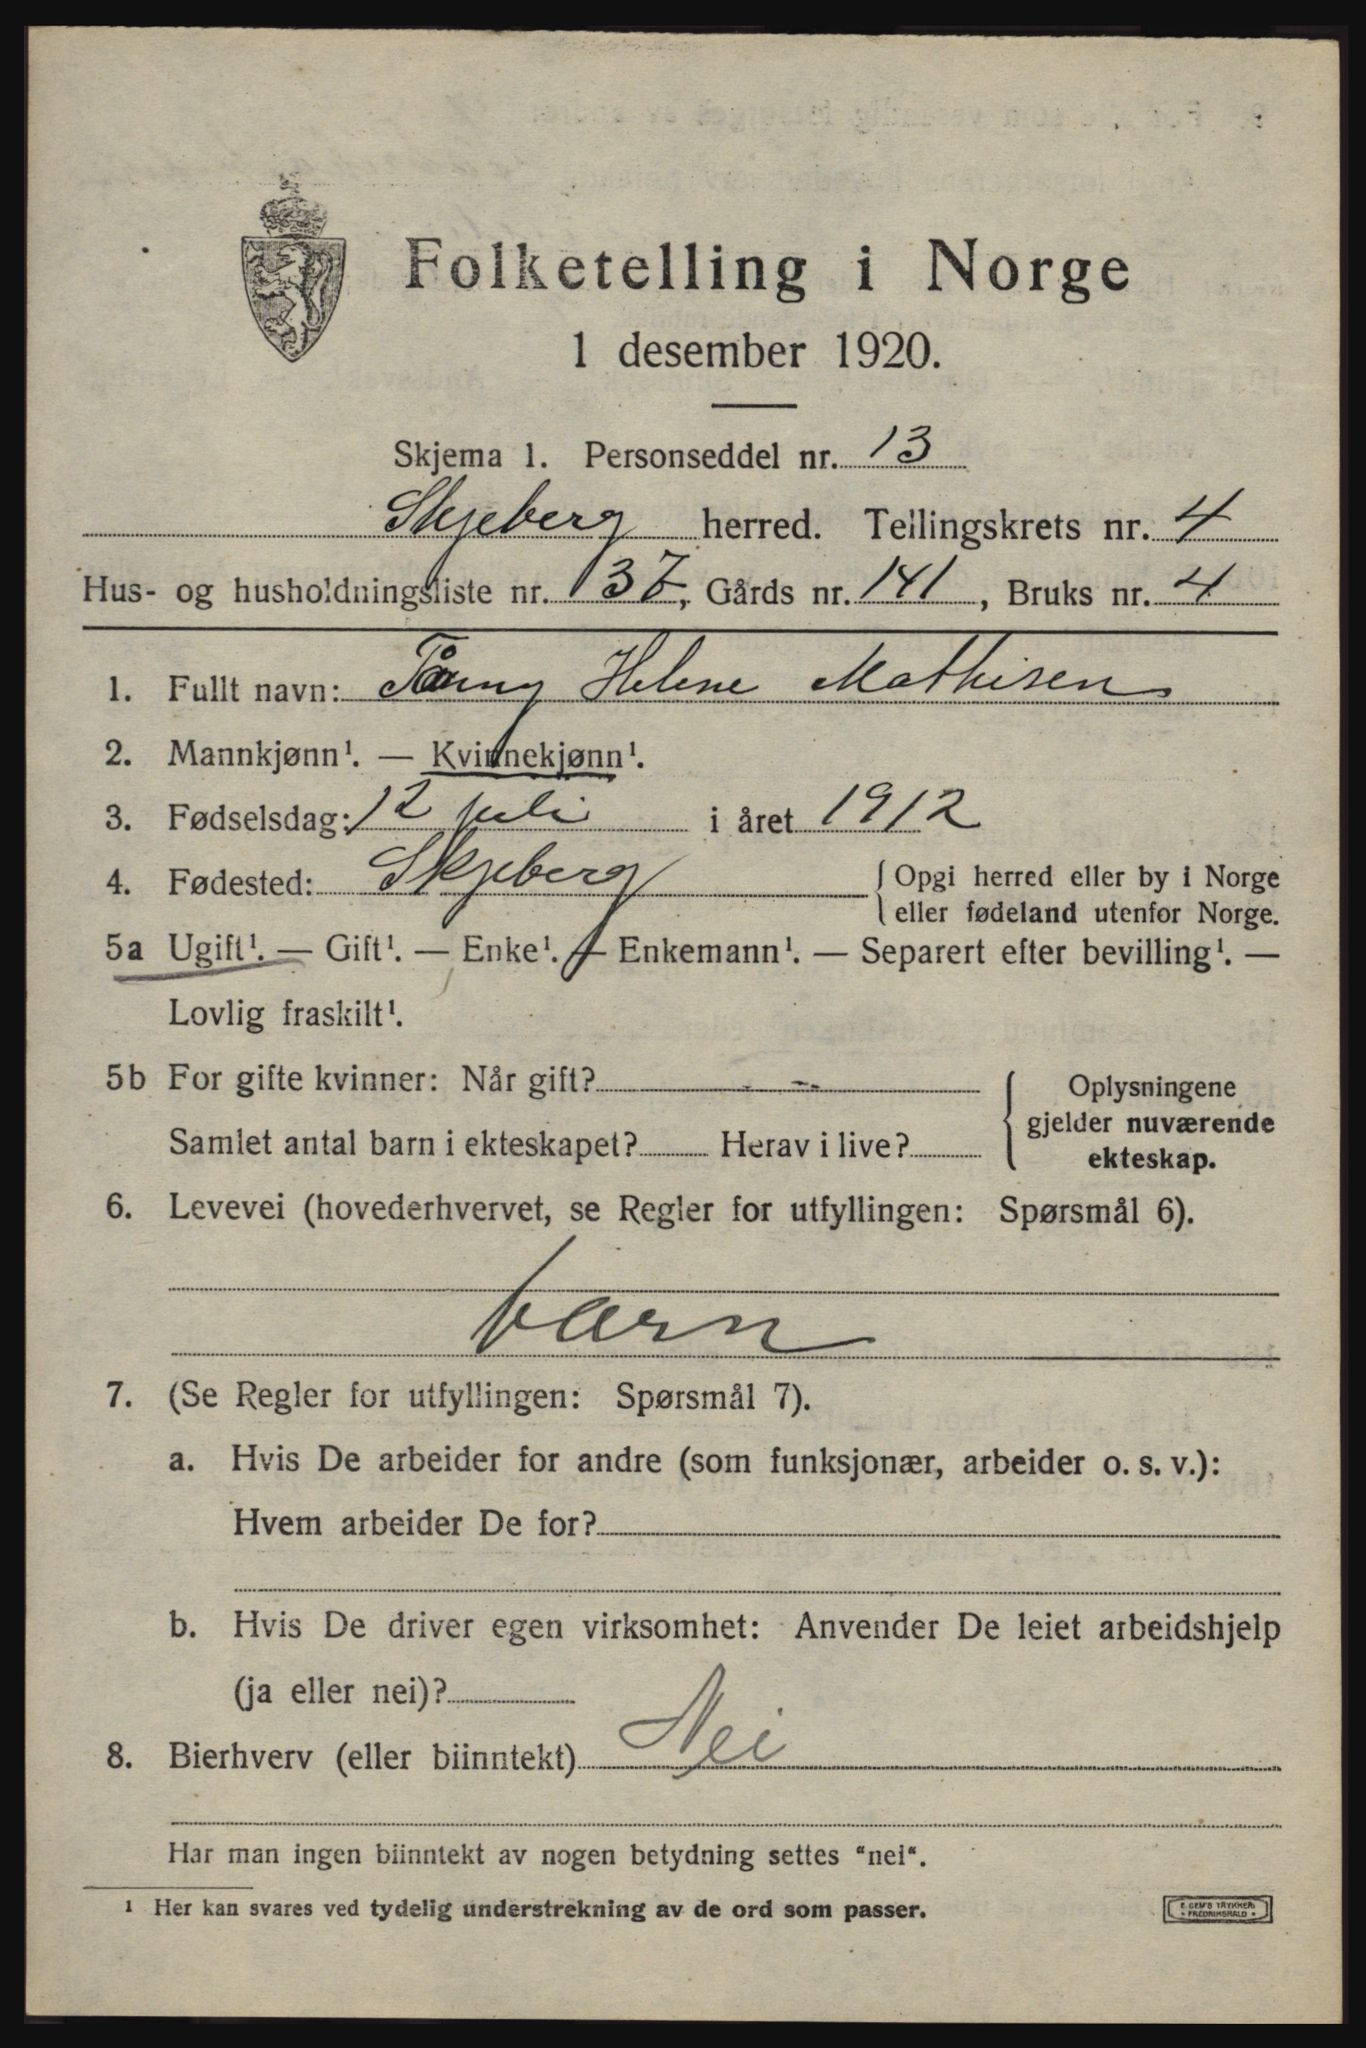 Folketelling i Norge
1 desember 1920.
Skjema 1. Personseddel nr. 13
Skjeberg herred. Tellingskrets nr. 4
Hus- og husholdningsliste nr. 137, Gårds nr. 141, Bruks nr. 4
1. Fullt navn: Helene Mathisen
2. Mannkjønn¹. — Kvinnekjønn¹.
3. Fødselsdag: 12 juli i året 1912
4. Fødested: Skjeberg { Opgi herred eller by i Norge
eller fødeland utenfor Norge.
5a Ugift¹. — Gift¹. — Enke¹. — Enkemann¹. — Separert efter bevilling¹. —
Lovlig fraskilt¹.
5b For gifte kvinner: Når gift? - -
Samlet antal barn i ekteskapet? Herav i live?
{ Oplysningene
gjelder nuværende
ekteskap.
6. Levevei (hovederhvervet, se Regler for utfyllingen: Spørsmål 6).
barn
7. (Se Regler for utfyllingen: Spørsmål 7).
a. Hvis De arbeider for andre (som funksjonær, arbeider o. s. v.):
Hvem arbeider De for?
b. Hvis De driver egen virksomhet: Anvender De leiet arbeidshjelp
(ja eller nei)?
8. Bierhverv (eller biinntekt) Nei
Har man ingen biinntekt av nogen betydning settes "nei".
¹ Her kan svares ved tydelig understrekning av de ord som passer.
E. GEM'S TRYKKERI
• FREDRIKSHALD •